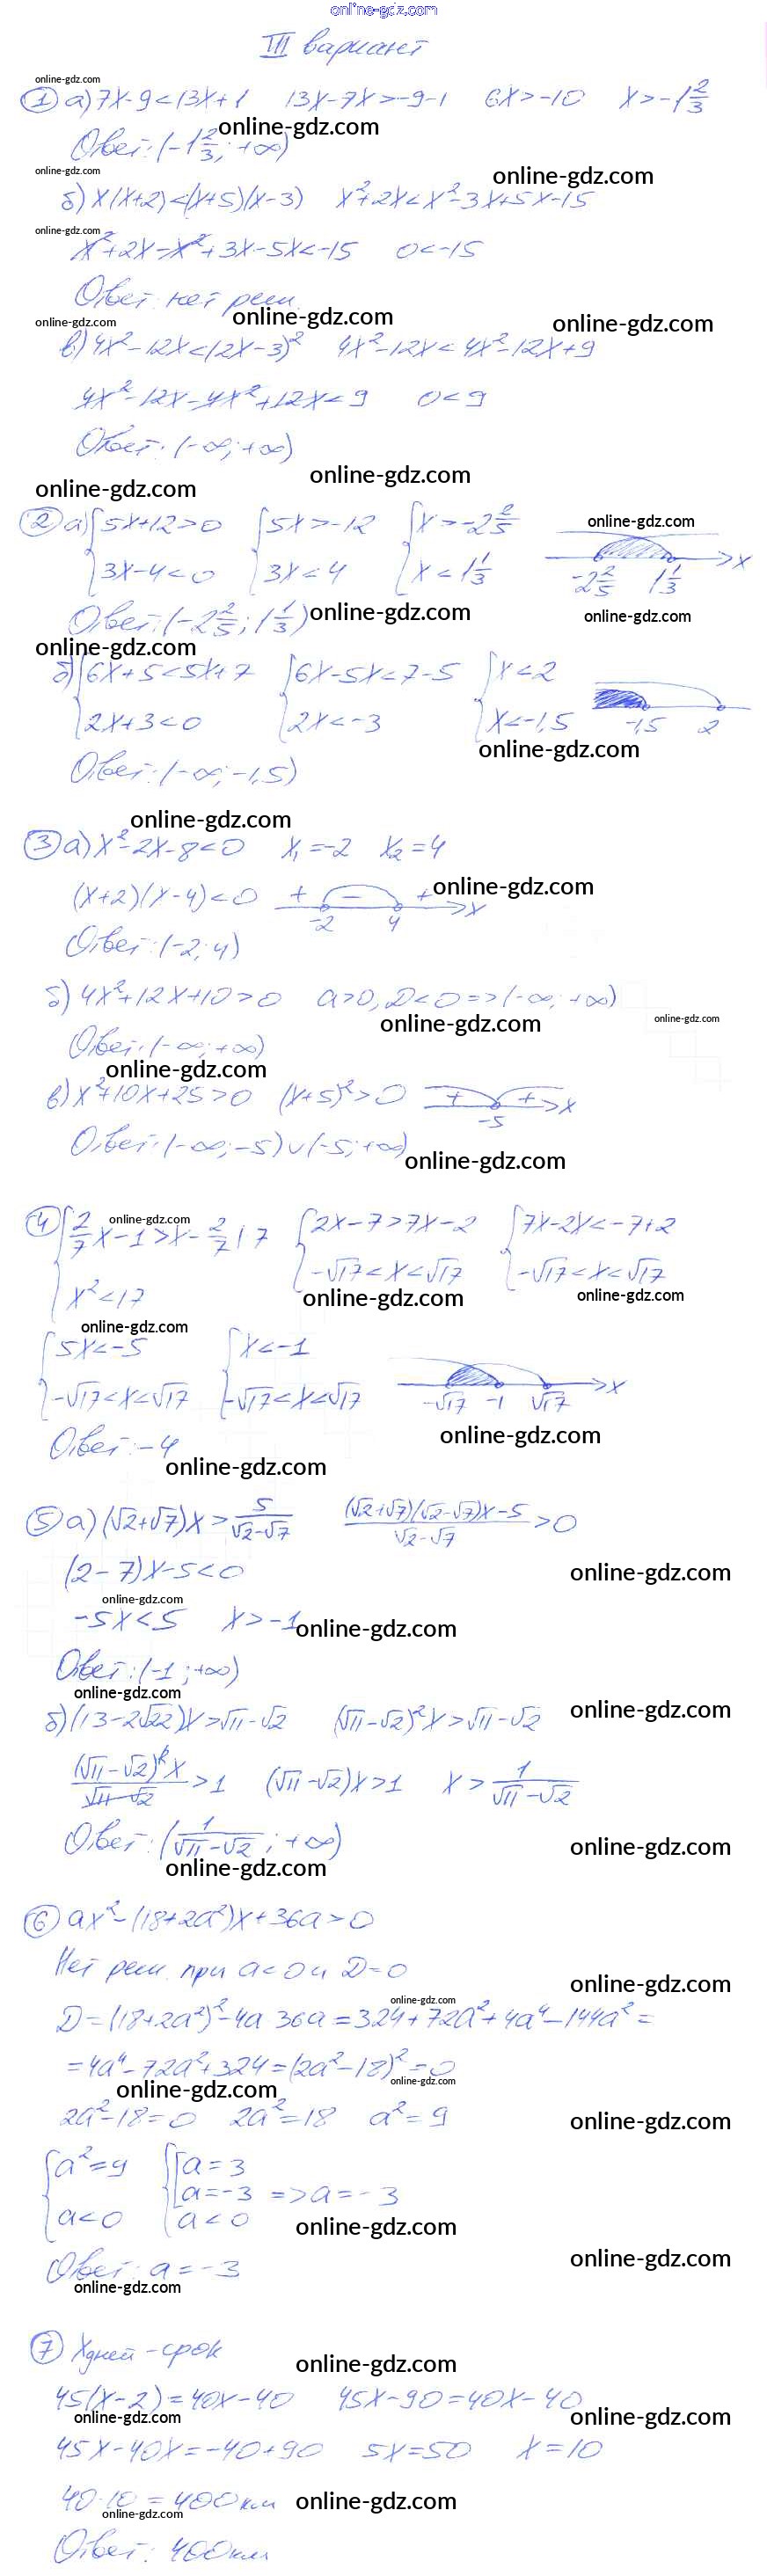 online-gdz.com
III вариант
online-gdz.com
① а) 7x-9<13x+1 13x-7x>-9-1 6x>-10 x>-1 2/3
online-gdz.com
Ответ: (-1 2/3; +∞)
online-gdz.com online-gdz.com
б) x(x+2)<(x+5)(x-3) x²+2x<x²-3x+5x-15
online-gdz.com
x²+2x-x²+3x-5x<-15 0<-15
Ответ: нет реш.
online-gdz.com online-gdz.com online-gdz.com
в) 4x²-12x<(2x-3)² 4x²-12x<4x²-12x+9
4x²-12x-4x²+12x<9 0<9
Ответ: (-∞; +∞)
online-gdz.com online-gdz.com
② а) {5x+12>0 {5x>-12 {x>-2 2/5 online-gdz.com
{3x-4<0 {3x<4 {x<1 1/3 -2 2/5 1 1/3 x
Ответ: (-2 2/5; 1 1/3) online-gdz.com online-gdz.com
online-gdz.com
б) {6x+5<5x+7 {6x-5x<7-5 {x<2
{2x+3<0 {2x<-3 {x<-1,5 -1,5 2
online-gdz.com
Ответ: (-∞; -1,5)
online-gdz.com
③ а) x²-2x-8<0 x₁=-2 x₂=4
online-gdz.com
(x+2)(x-4)<0 + - + x
-2 4
Ответ: (-2; 4)
б) 4x²+12x+10>0 a>0, D<0 => (-∞; +∞)
online-gdz.com online-gdz.com
Ответ: (-∞; +∞)
online-gdz.com
в) x²+10x+25>0 (x+5)²>0 + + x
-5
Ответ: (-∞; -5)∪(-5; +∞)
online-gdz.com
④ {2/7 x-1>x-2/7 |·7 {2x-7>7x-2 {7x-2x<-7+2
online-gdz.com
{x²<17 {-√17<x<√17 {-√17<x<√17
online-gdz.com online-gdz.com
online-gdz.com
{5x<-5 {x<-1
{-√17<x<√17 {-√17<x<√17 -√17 -1 √17 x
online-gdz.com
Ответ: -4
online-gdz.com
⑤ а) (√2+√7)x>5/(√2-√7) ((√2+√7)(√2-√7)x-5)/(√2-√7)>0
(2-7)x-5<0 online-gdz.com
online-gdz.com
-5x<5 x>-1 online-gdz.com
Ответ: (-1; +∞)
online-gdz.com
б) (13-2√22)x>√11-√2 (√11-√2)²x>√11-√2 online-gdz.com
(√11-√2)²x/(√11-√2)>1 (√11-√2)x>1 x>1/(√11-√2)
Ответ: (1/(√11-√2); +∞) online-gdz.com
online-gdz.com
⑥ ax²-(18+2a²)x+36a>0
Нет реш. при a<0 и D=0
online-gdz.com
online-gdz.com
D=(18+2a²)²-4a·36a=324+72a²+4a⁴-144a²=
=4a⁴-72a²+324=(2a²-18)²=0
online-gdz.com online-gdz.com
2a²-18=0 2a²=18 a²=9 online-gdz.com
{a²=9 {[a=3
[a=-3 => a=-3
{a<0 {a<0 online-gdz.com
online-gdz.com
Ответ: a=-3
online-gdz.com
⑦ x дней - срок
online-gdz.com
45(x-2)=40x-40 45x-90=40x-40
online-gdz.com online-gdz.com
45x-40x=-40+90 5x=50 x=10
40·10=400км online-gdz.com
online-gdz.com
Ответ: 400км